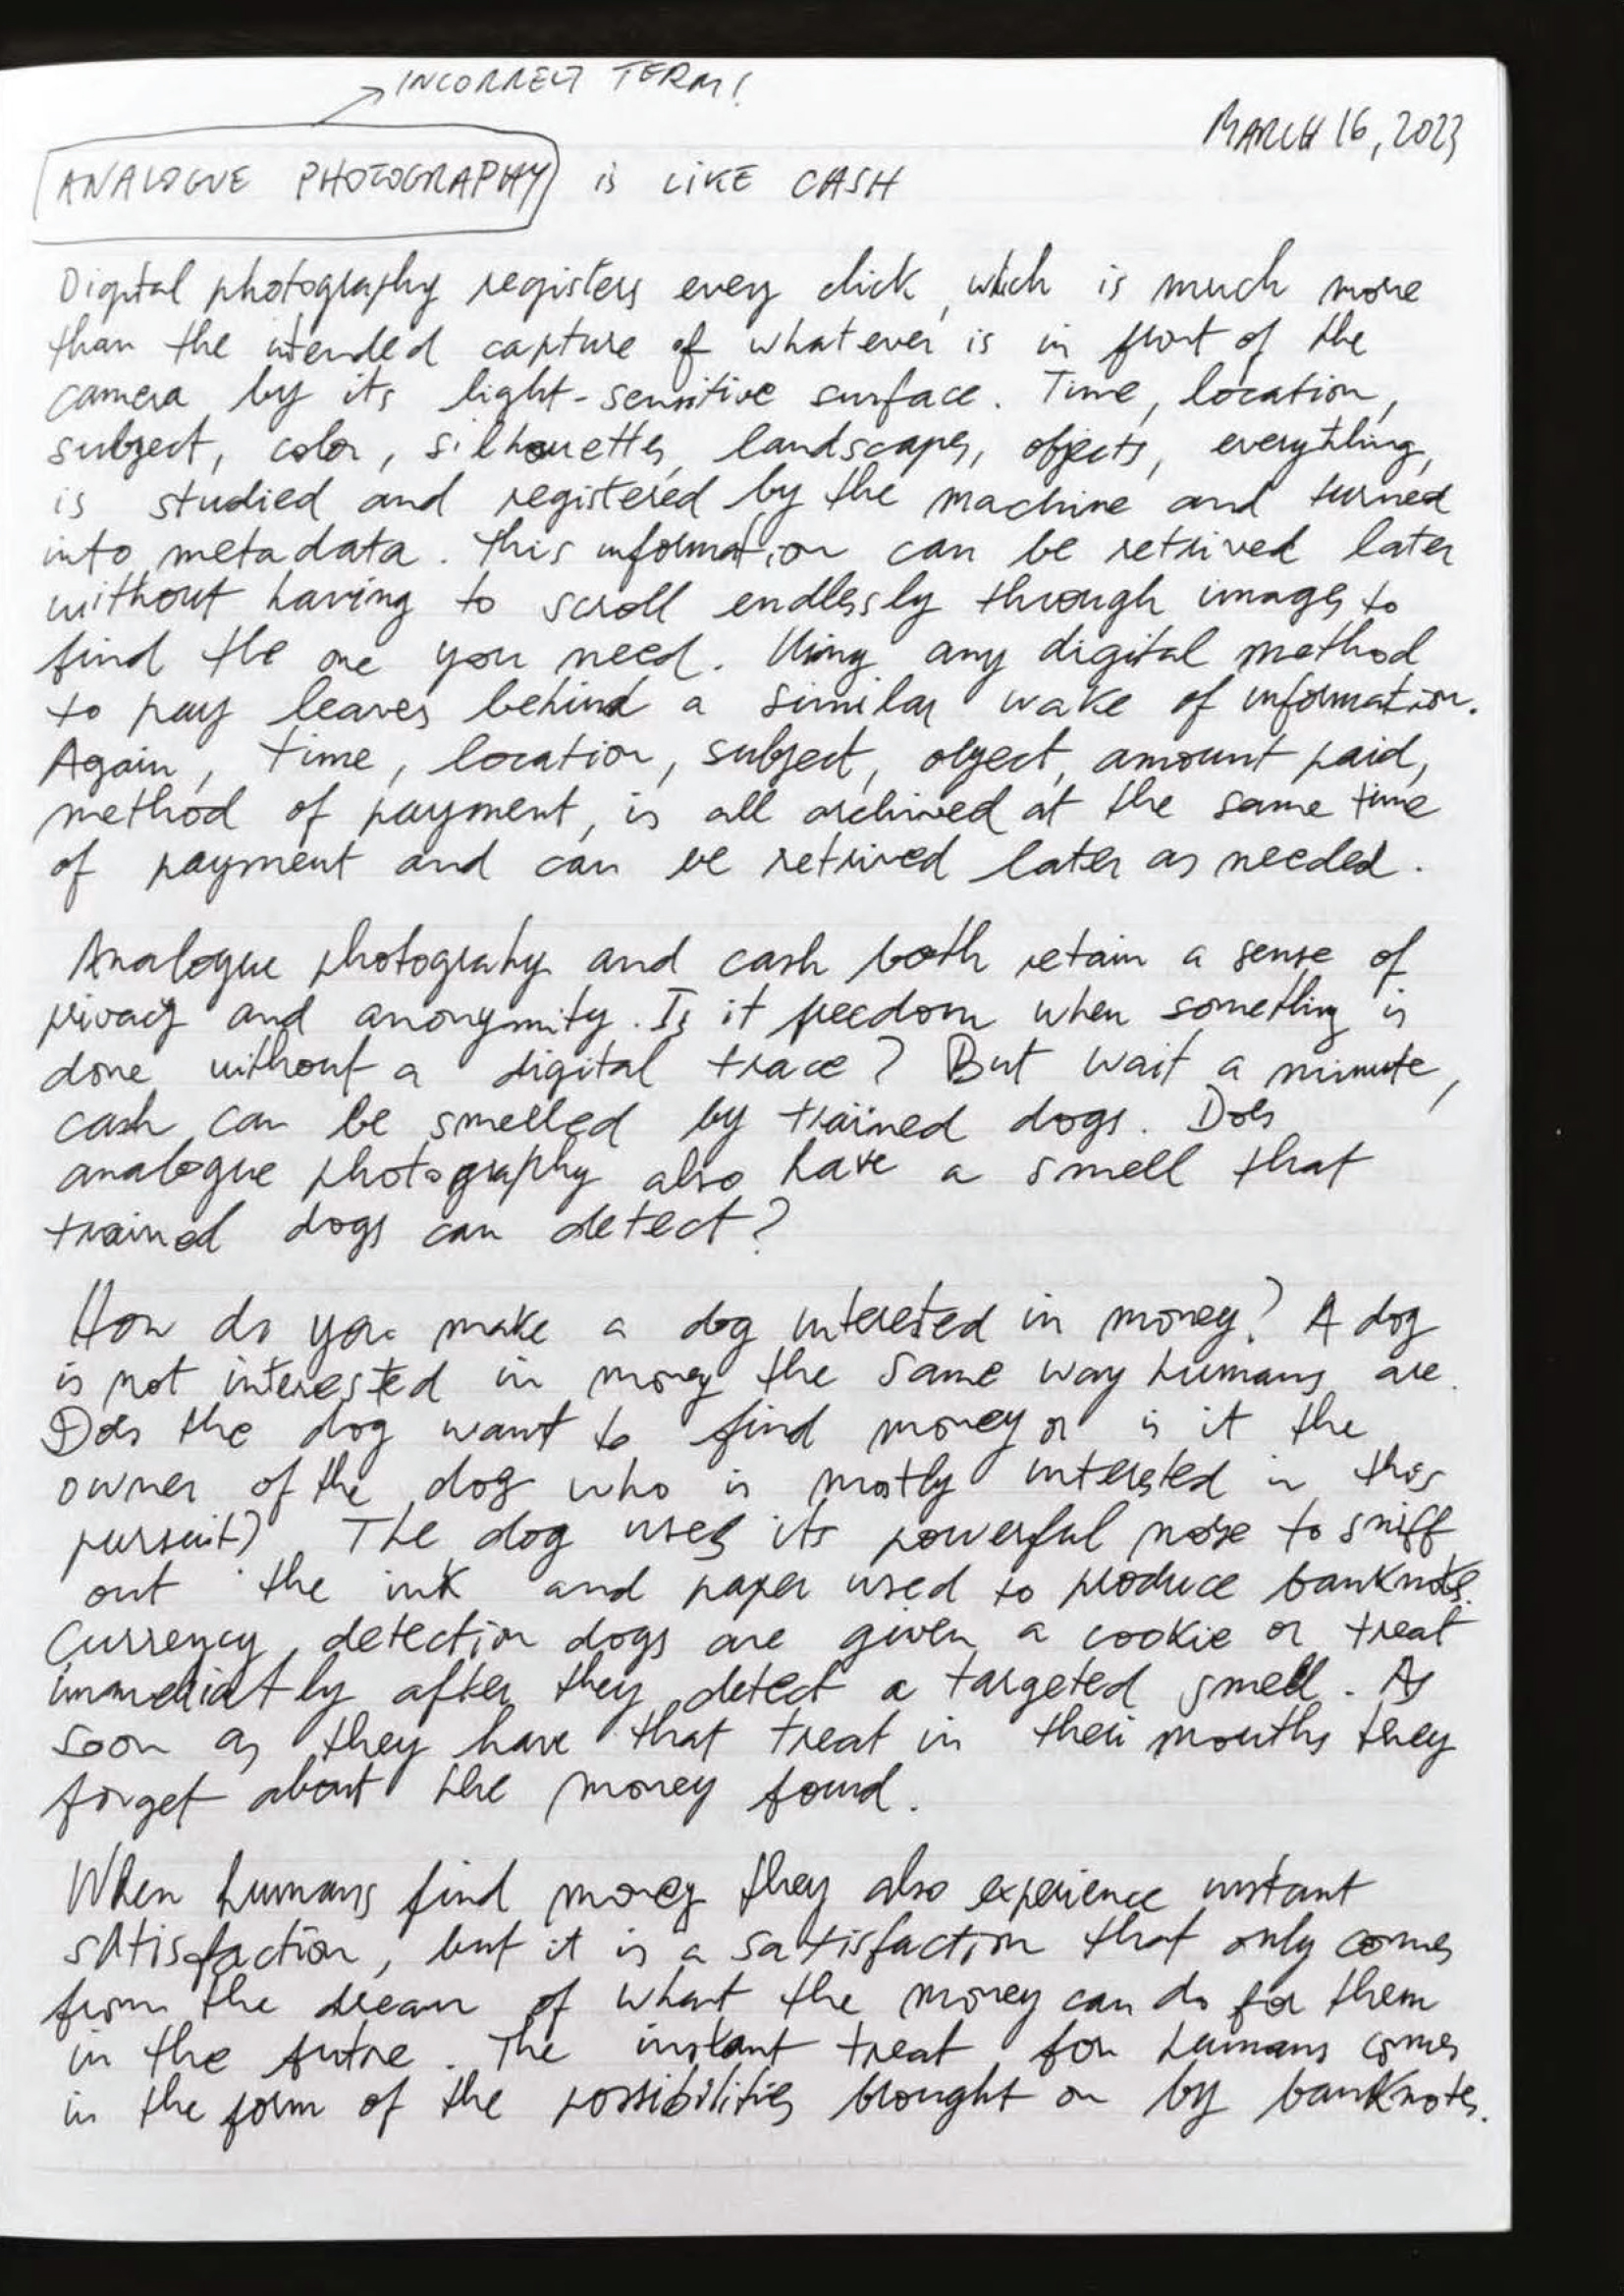 INCORRECT TERM!
MARCH 16, 2023
ANALOGUE PHOTOGRAPHY is LIKE CASH
Digital photography registers every click, which is much more
than the intended capture of whatever is in front of the
camera by its light-sensitive surface. Time, location,
subject, color, silhouettes, landscapes, objects, everything,
is studied and registered by the machine and turned
into metadata. This information can be retrived later
without having to scroll endlessly through images to
find the one you need. Using any digital method
to pay leaves behind a similar wake of information.
Again, time, location, subject, object, amount paid,
method of payment, is all archived at the same time
of payment and can be retrived later as needed.
Analogue photograhy and cash both retain a sense of
privacy and anonymity. Is it freedom when something is
done without a digital trace? But wait a minute,
cash can be smelled by trained dogs. Does
analogue photography also have a smell that
trained dogs can detect?
How do you make a dog interested in money? A dog
is not interested in money the same way humans are.
Does the dog want to find money or is it the
owner of the dog who is mostly interested in this
pursuit? The dog uses its powerful nose to sniff
out the ink and paper used to produce banknotes.
Currency detection dogs are given a cookie or treat
immediatly after they detect a targeted smell. As
soon as they have that treat in their mouths they
forget about the money found.
When humans find money they also experience instant
satisfaction, but it is a satisfaction that only comes
from the dream of what the money can do for them
in the futre. The instant treat for humans comes
in the form of the possibilities brought on by banknotes.